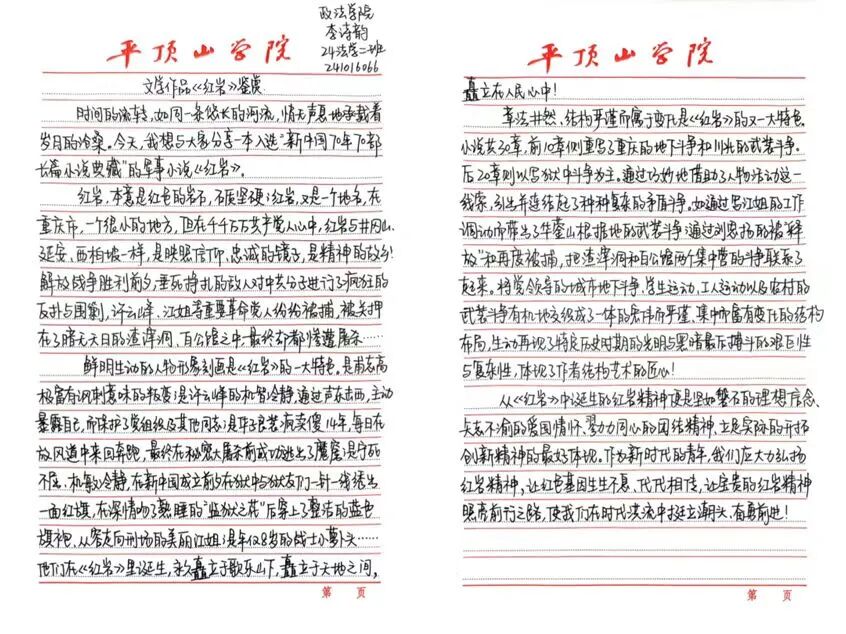 政法学院
李诗韵
24法学二班
241016066
平顶山学院
文学作品《红岩》鉴赏
时间的流转，如同一条悠长的河流，悄无声息地承载着
岁月的沧桑。今天，我想与大家分享一本入选“新中国70年70部
长篇小说典藏”的军事小说《红岩》。
红岩，本意是红色的岩石，石质坚硬；红岩，又是一个地名，在
重庆市，一个很小的地方，但在千千万万共产党人心中，红岩与井冈山、
延安、西柏坡一样，是映照信仰、忠诚的镜子，是精神的故乡！
解放战争胜利前夕，垂死挣扎的敌人对中共分子进行了疯狂的
反扑与围剿，许云峰、江姐等重要革命党人纷纷被捕，被关押
在了暗无天日的渣滓洞、白公馆之中，最终却都惨遭屠杀……
鲜明生动的人物形象刻画是《红岩》的一大特色。是甫志高
极富有讽刺意味的叛变；是许云峰的机智冷静，通过声东击西，主动
暴露自己，而保护了党组织及其他同志；是华子良装疯卖傻14年，每日在
放风道中来回奔跑，最终在秘密大屠杀前成功逃出了魔窟；是宁死
不屈、机敏冷静，在新中国成立前夕在狱中与狱友们一针一线绣出
一面红旗，在深情吻了熟睡的“监狱之花”后穿上了整洁的蓝色
旗袍、从容走向刑场的美丽江姐；是年仅8岁的战士小萝卜头……
他们在《红岩》里诞生，永久矗立于歌乐山下，矗立于天地之间，
第 页
平顶山学院
矗立在人民心中！
章法井然、结构严谨而富于变化是《红岩》的又一大特色。
小说共30章，前10章侧重写了重庆的地下斗争和川北的武装斗争。
后20章则以写狱中斗争为主。通过巧妙地借助了人物活动这一
线索，引出并连结起了种种复杂的矛盾斗争。如通过写江姐的工作
调动而带出了华蓥山根据地的武装斗争；通过刘思扬的被“释
放”和再度被捕，把渣滓洞和白公馆两个集中营的斗争联系了
起来。将党领导的城市地下斗争、学生运动、工人运动以及农村的
武装斗争有机地交织成了一体的宏伟而严谨、集中而富有变化的结构
布局，生动再现了特定历史时期的光明与黑暗最后搏斗的艰巨性
与复杂性，体现了作者结构艺术的匠心！
从《红岩》中诞生的红岩精神更是坚如磐石的理想信念、
矢志不渝的爱国情怀、勠力同心的团结精神、立足实际的开拓
创新精神的最好体现。作为新时代的青年，我们应大力弘扬
红岩精神，让红色基因生生不息、代代相传，让宝贵的红岩精神
照亮前行之路，使我们在时代洪流中挺立潮头、奋勇前进！
第 页